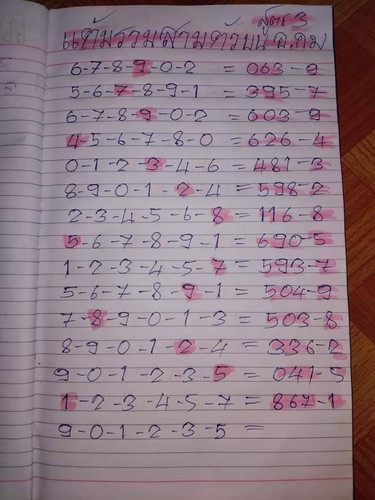 สูตร 3
แต้มรวมสามตัวบน จ.กม
6-7-8-9-0-2 = 063-9
5-6-7-8-9-1 = 395-7
6-7-8-9-0-2 = 603-9
4-5-6-7-8-0 = 626-4
0-1-2-3-4-6 = 481-3
8-9-0-1-2-4 = 598-2
2-3-4-5-6-8 = 116-8
5-6-7-8-9-1 = 690-5
1-2-3-4-5-7 = 593-7
5-6-7-8-9-1 = 504-9
7-8-9-0-1-3 = 503-8
8-9-0-1-2-4 = 336-2
9-0-1-2-3-5 = 041-5
1-2-3-4-5-7 = 867-1
9-0-1-2-3-5 =